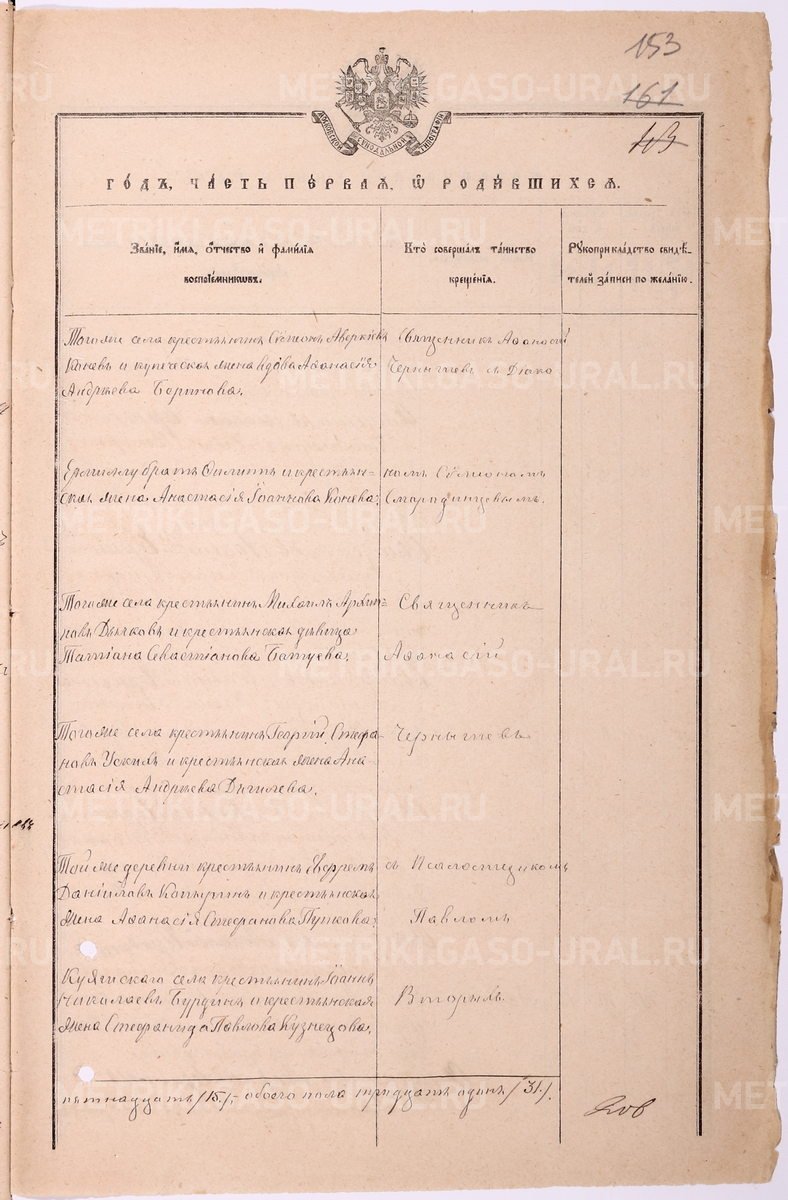 153
161
МОСКОВСКОЙ СИНОДАЛЬНОЙ ТИПОГРАФІИ
ГОДЪ, ЧАСТЬ ПЕРВАЯ, Ѡ РОДИВШИХСЯ.
Званіе, имя, отчество и фамилія
воспріемниковъ.
Кто совершалъ таинство
крещенія.
Рукоприкладство свидѣ-
телей записи по желанію.
Тогоже села крестьянинъ Симеонъ Аверкіевъ
Коневъ и купеческая жена вдова Аѳанасія
Андрѣева Боринова.
Священникъ Аѳанасій
Чернышевъ съ Діако
Ермиллу братъ Филиппъ и крестьян-
ская жена Анастасія Іоаннова Конева.
номъ Симеономъ
Смородинцевымъ.
Тогоже села крестьянинъ Михаилъ Архип-
овъ Дьячковъ и крестьянская дѣвица
Татіана Севастіанова Батуева.
Священникъ
Аѳанасій
Тогоже села крестьянинъ Георгій Стефа-
новъ Ускихъ и крестьянская жена Ана-
стасія Андрѣева Дягилева.
Чернышевъ
Той же деревни крестьянинъ Ефремъ
Даніиловъ Копыринъ и крестьянская
жена Аѳанасія Стефанова Пупкова.
съ Псаломщикомъ
Павломъ
Куягискаго села крестьянинъ Іоаннъ
Николаевъ Бурдинъ и крестьянская
жена Стефанида Павлова Кузнецова.
Вторымъ
пятнадцать /15./- обоего пола тридцать одинъ /31./
ков